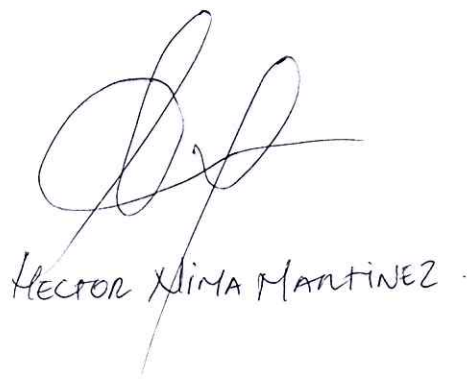 HECTOR NIMA MARTINEZ.